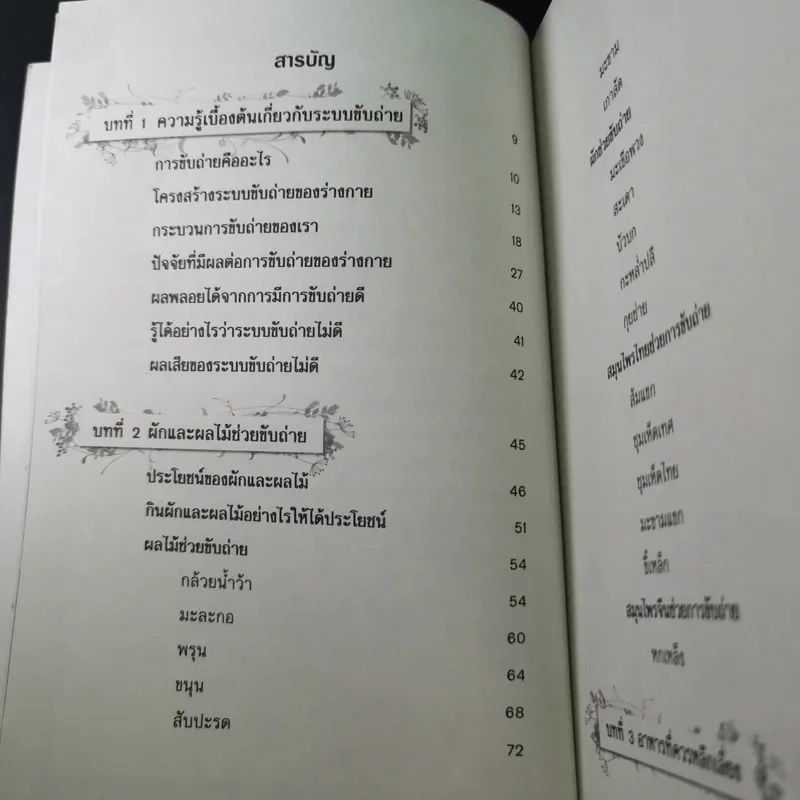 สารบัญ
บทที่ 1 ความรู้เบื้องต้นเกี่ยวกับระบบขับถ่าย 9
การขับถ่ายคืออะไร 10
โครงสร้างระบบขับถ่ายของร่างกาย 13
กระบวนการขับถ่ายของเรา 18
ปัจจัยที่มีผลต่อการขับถ่ายของร่างกาย 27
ผลพลอยได้จากการมีการขับถ่ายดี 40
รู้ได้อย่างไรว่าระบบขับถ่ายไม่ดี 41
ผลเสียของระบบขับถ่ายไม่ดี 42
บทที่ 2 ผักและผลไม้ช่วยขับถ่าย 45
ประโยชน์ของผักและผลไม้ 46
กินผักและผลไม้อย่างไรให้ได้ประโยชน์ 51
ผลไม้ช่วยขับถ่าย 54
กล้วยน้ำว้า 54
มะละกอ 60
พรุน 64
ขนุน 68
สับปะรด 72
มะขาม
เกาลัด
ผักช่วยขับถ่าย
มะเขือพวง
สะเดา
บัวบก
กะหล่ำปลี
กุยช่าย
สมุนไพรไทยช่วยการขับถ่าย
ส้มแขก
ชุมเห็ดเทศ
ชุมเห็ดไทย
มะขามแขก
ขี้เหล็ก
สมุนไพรจีนช่วยการขับถ่าย
หกเหลี่ยง
บทที่ 3 อาหารที่ควรหลีกเลี่ยง